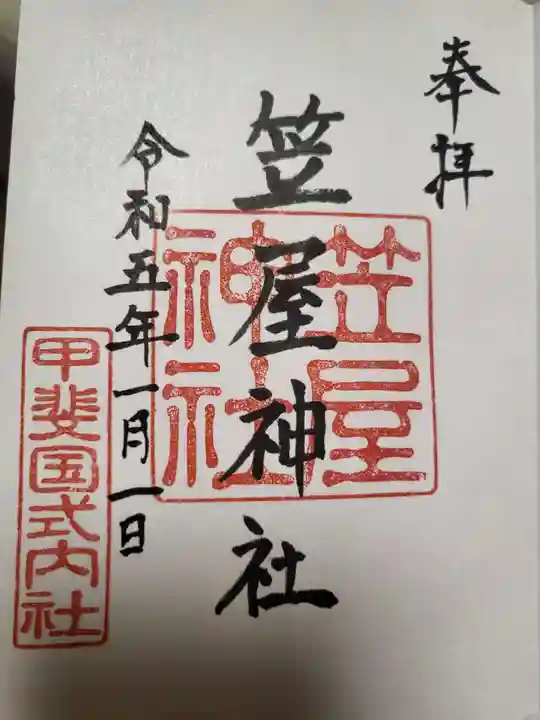 奉拝
笠屋神社
笠屋
神社
令和五年一月一日
甲斐国式内社